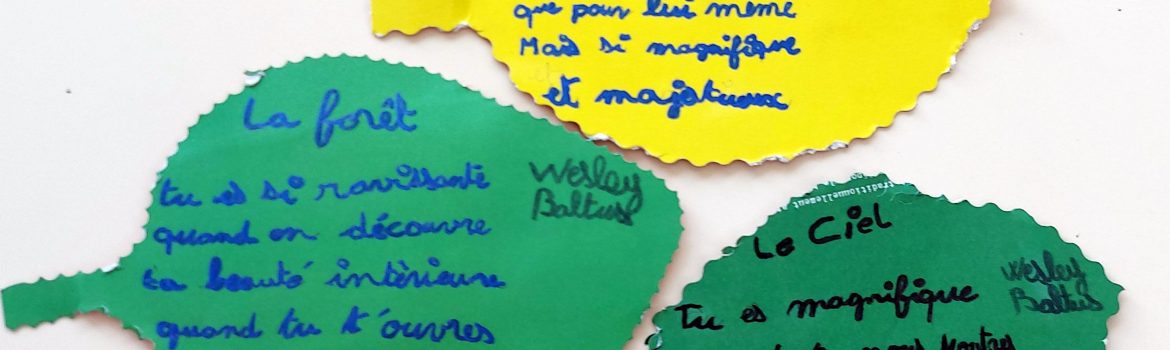 que pour lui même
Mais si magnifique
et majestueux
La forêt
Wesley
Baltus
tu es si ravissante
quand on découvre
ta beauté intèrieure
quand tu t'ouvres
traditionnellement
Le Ciel
Wesley
Baltus
Tu es magnifique
nous montres